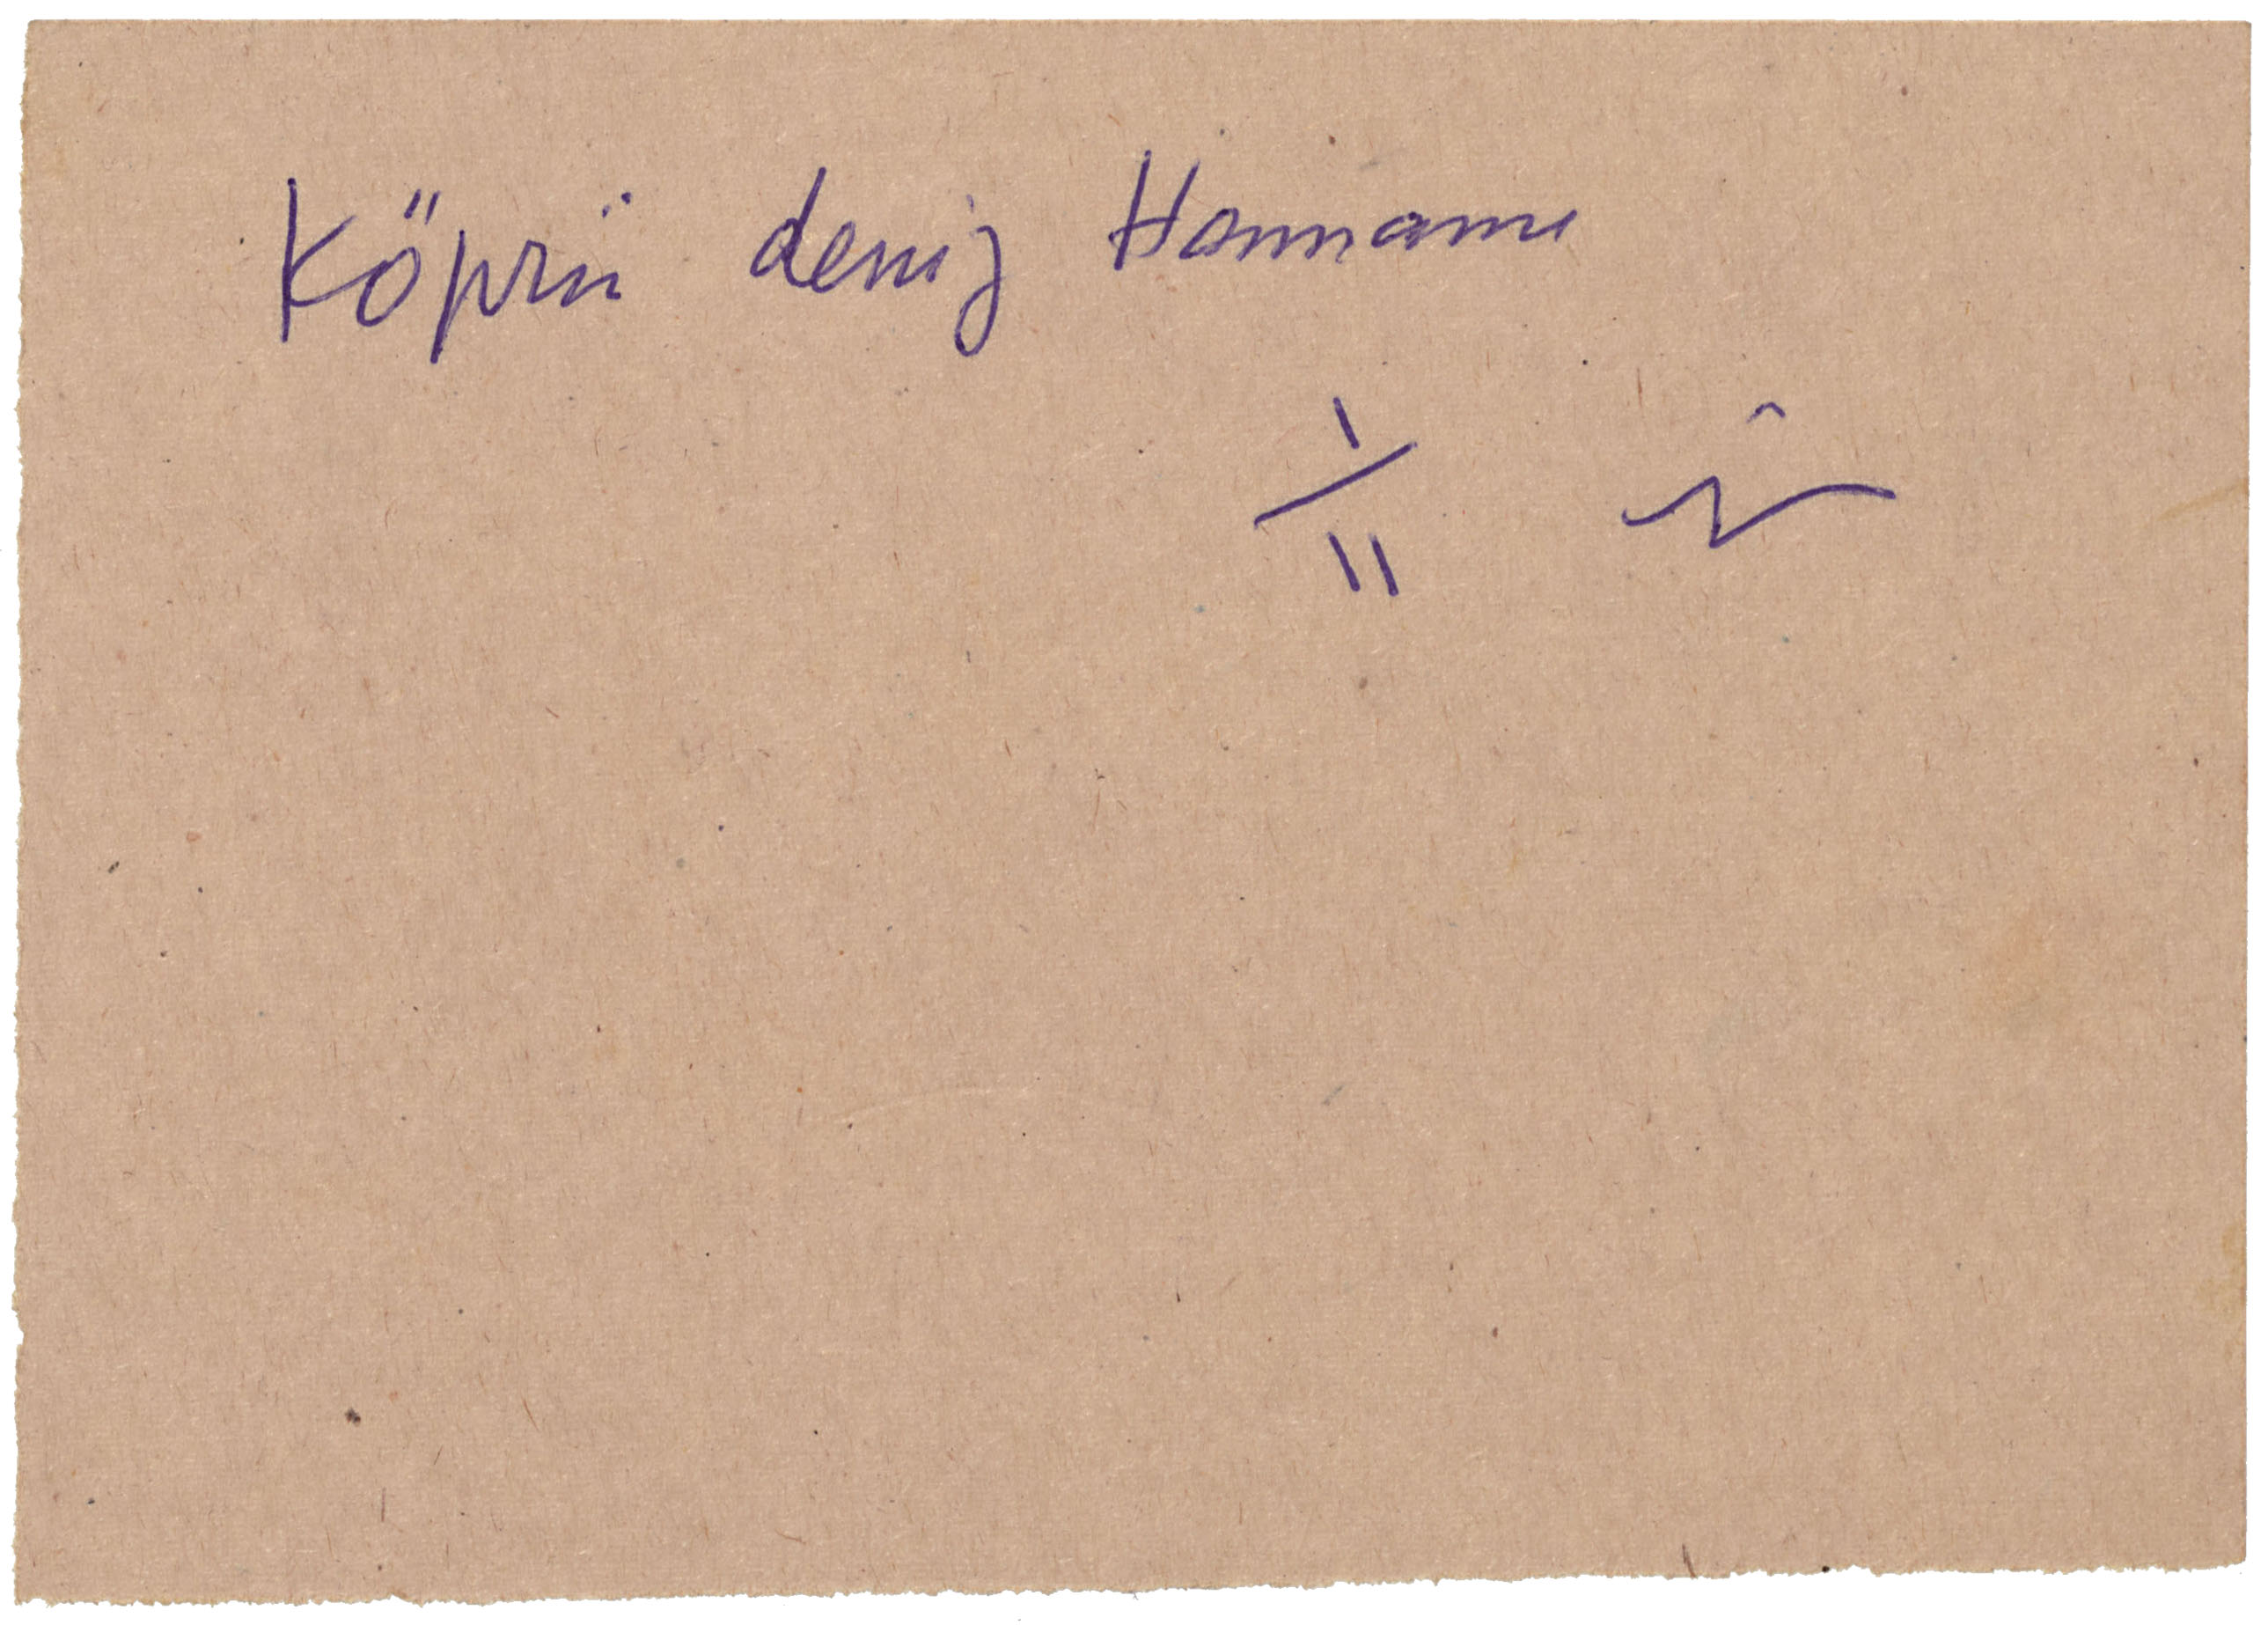 Köprü deniz Hamamı
I / II